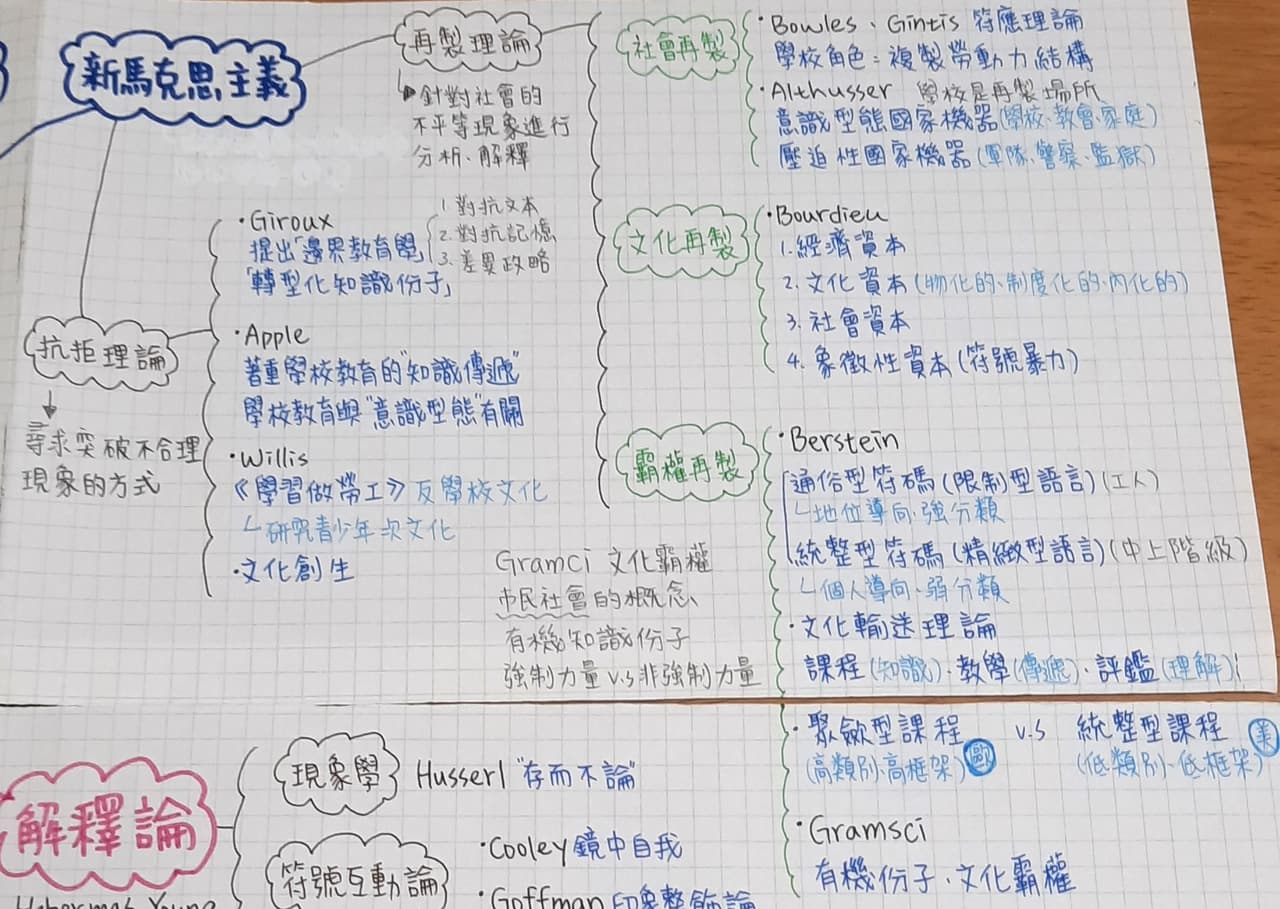 新馬克思主義
再製理論
針對社會的
不平等現象進行
分析、解釋
社會再製
・Bowles、Gintis 符應理論
學校角色：複製勞動力結構
・Althusser 學校是再製場所
意識型態國家機器(學校、教會、家庭)
壓迫性國家機器(軍隊、警察、監獄)
文化再製
・Bourdieu
1.經濟資本
2.文化資本(物化的、制度化的、內化的)
3.社會資本
4.象徵性資本(符號暴力)
霸權再製
・Berstein
通俗型符碼(限制型語言)(工人)
地位導向、強分類
統整型符碼(精緻型語言)(中上階級)
個人導向、弱分類
・文化輸送理論
課程(知識)、教學(傳遞)、評鑑(理解)
・聚斂型課程 v.s 統整型課程
(高類別、高框架)歐 (低類別、低框架)美
・Gramsci
有機份子、文化霸權
抗拒理論
尋求突破不合理
現象的方式
・Giroux
提出「邊界教育學」
「轉型化知識份子」
1.對抗文本
2.對抗記憶
3.差異政略
・Apple
著重學校教育的"知識傳遞"
學校教育與"意識型態"有關
・Willis
《學習做勞工》反學校文化
研究青少年次文化
・文化創生
Gramci 文化霸權
市民社會的概念
有機知識份子
強制力量 v.s 非強制力量
解釋論
現象學
Husserl "存而不論"
符號互動論
・Cooley 鏡中自我
・Goffman 印象整飾論
Habermas Young